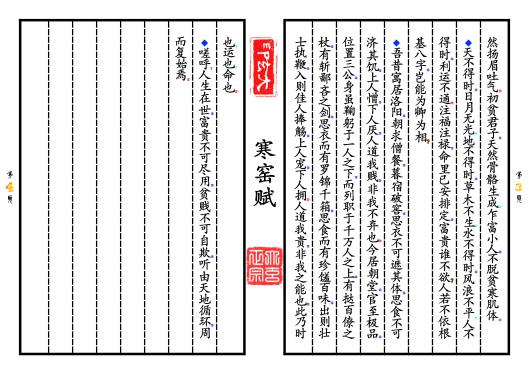 然扬眉吐气初贫君子天然骨骼生成乍富小人不脱贫寒肌体。
◆天不得时日月无光地不得时草木不生水不得时风浪不平人不
得时利运不通注福注禄命里已安排定富贵谁不欲人若不依根
基八字岂能为卿为相。
◆吾昔寓居洛阳朝求僧餐暮宿破窑思衣不可遮其体思食不可
济其饥上人憎下人厌人道我贱非我不弃也今居朝堂官至极品
位置三公身虽鞠躬于一人之下而列职于千万人之上有挞百僚之
杖有斩鄙吝之剑思衣而有罗锦千箱思食而有珍馐百味出则壮
士执鞭入则佳人捧觞上人宠下人拥人道我贵非我之能也此乃时
3
寒窑赋
也运也命也。
◆嗟呼人生在世富贵不可尽用贫贱不可自欺听由天地循环周
而复始焉。
4